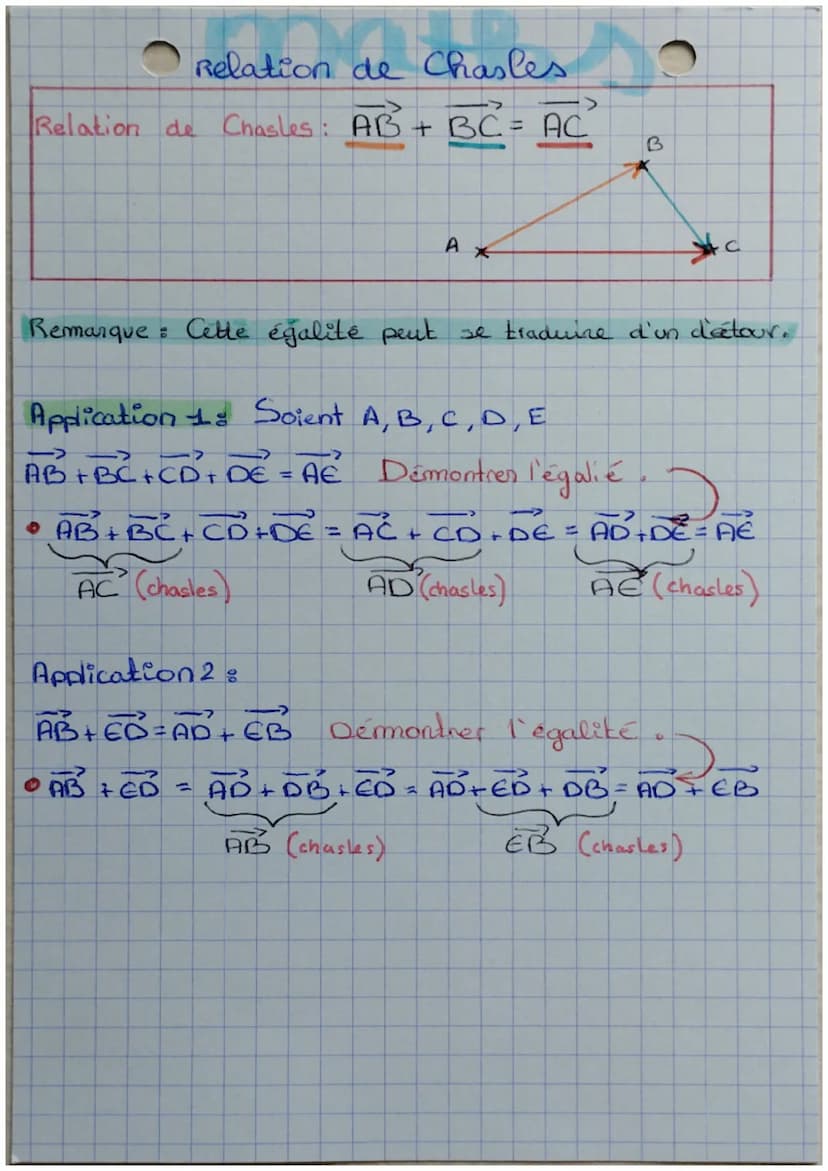 maths
Relation de Chasles
Relation de Chasles : AB + BC = AC
B
A
C
Remarque : Cette égalité peut se traduire d'un détour.
Application 1 : Soient A, B, C, D, E
AB + BC + CD + DE = AE Démontrer l'égalié.
• AB + BC + CD + DE = AC + CD + DE = AD + DE = AE
AC (chasles) AD (chasles) AE (chasles)
Application 2 :
AB + ED = AD + EB Démontrer l'égalité.
• AB + ED = AD + DB + ED = AD + ED + DB = AD + EB
AB (chasles) EB (chasles)